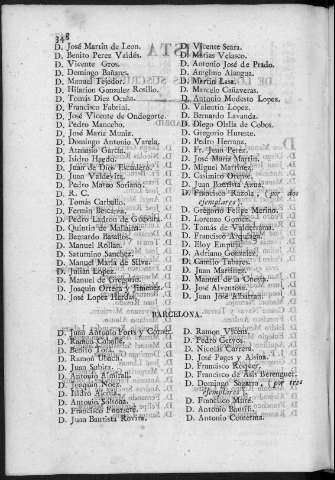 348
D. José Martin de Leon.
D. Benito Perez Valdés.
D. Vicente Gros.
D. Domingo Bañano.
D. Manuel Tejedor.
D. Hilarion Gonzalez Rosillo.
D. Tomás Diez Ocaño.
D. Francisco Fabriai.
D. José Vicente de Ondogorte.
D. Pedro Mancebo.
D. José María Muniz.
D. Domingo Antonio Varela.
D. Atanasio García.
D. Isidro Haedo.
D. Juan de Dios Escudero.
D. Juan Valdevira.
D. Pedro Mateo Soriano.
D. R. C.
D. Tomás Carballo.
D. Fermin Bescansa.
D. Pedro Ladron de Guevara.
D. Quintin de Mallaina.
D. Bernardo Bataller.
D. Manuel Rollan.
D. Saturnino Sanchez.
D. Manuel María de Silva.
D. Julian Lopez.
D. Manuel de Gregorio.
D. Joaquin Ortega y Jimenez.
D. José Lopez Herdas.
D. Vicente Seara.
D. Matías Velasco.
D. Antonio José de Prado.
D. Angelino Alangua.
D. Martin Lasa.
D. Marcelo Cañaveras.
D. Antonio Modesto Lopez.
D. Valentin Lopez.
D. Bernardo Lavanda.
D. Diego Olalla de Cobos.
D. Gregorio Hurente.
D. Pedro Herranz.
D. Fr. Juan Perez.
D. José María Martin.
D. Miguel Martinez.
D. Casimiro Orense.
D. Juan Bautista Azua.
D. Francisco Razola, (por dos
ejemplares).
D. Gregorio Felipe Merino.
D. Lorenzo Gomez.
D. Tomás de Valderrama.
D. Francisco Arquiaga.
D. Eloy Empun.
D. Adriano Gonzalez.
D. Camilo Tabares.
D. Juan Martinez.
D. Manuel de la Cuesta.
D. José Alventosa.
D. Juan José Albarran.
BARCELONA.
D. Juan Antonio Forts y Comas.
D. Ramon Cabañé.
D. Benito Tora.
D. Ramon Ubach.
D. Juan Subira.
D. Antonio Almirall.
D. Joaquin Noez.
D. Isidro Alsina.
D. Antonio Solsona.
D. Francisco Fontseré.
D. Juan Bautista Rovira.
D. Ramon Vicens.
D. Pedro Gervos.
D. Nicolás Carrera.
D. José Pages y Alsina.
D. Francisco Roquer.
D. Francisco de Asis Berenguer.
D. Domingo Sagarro, (por tres
ejemplares).
D. Francisco Miare.
D. Antonio Bautill.
D. Antonio Contenina.